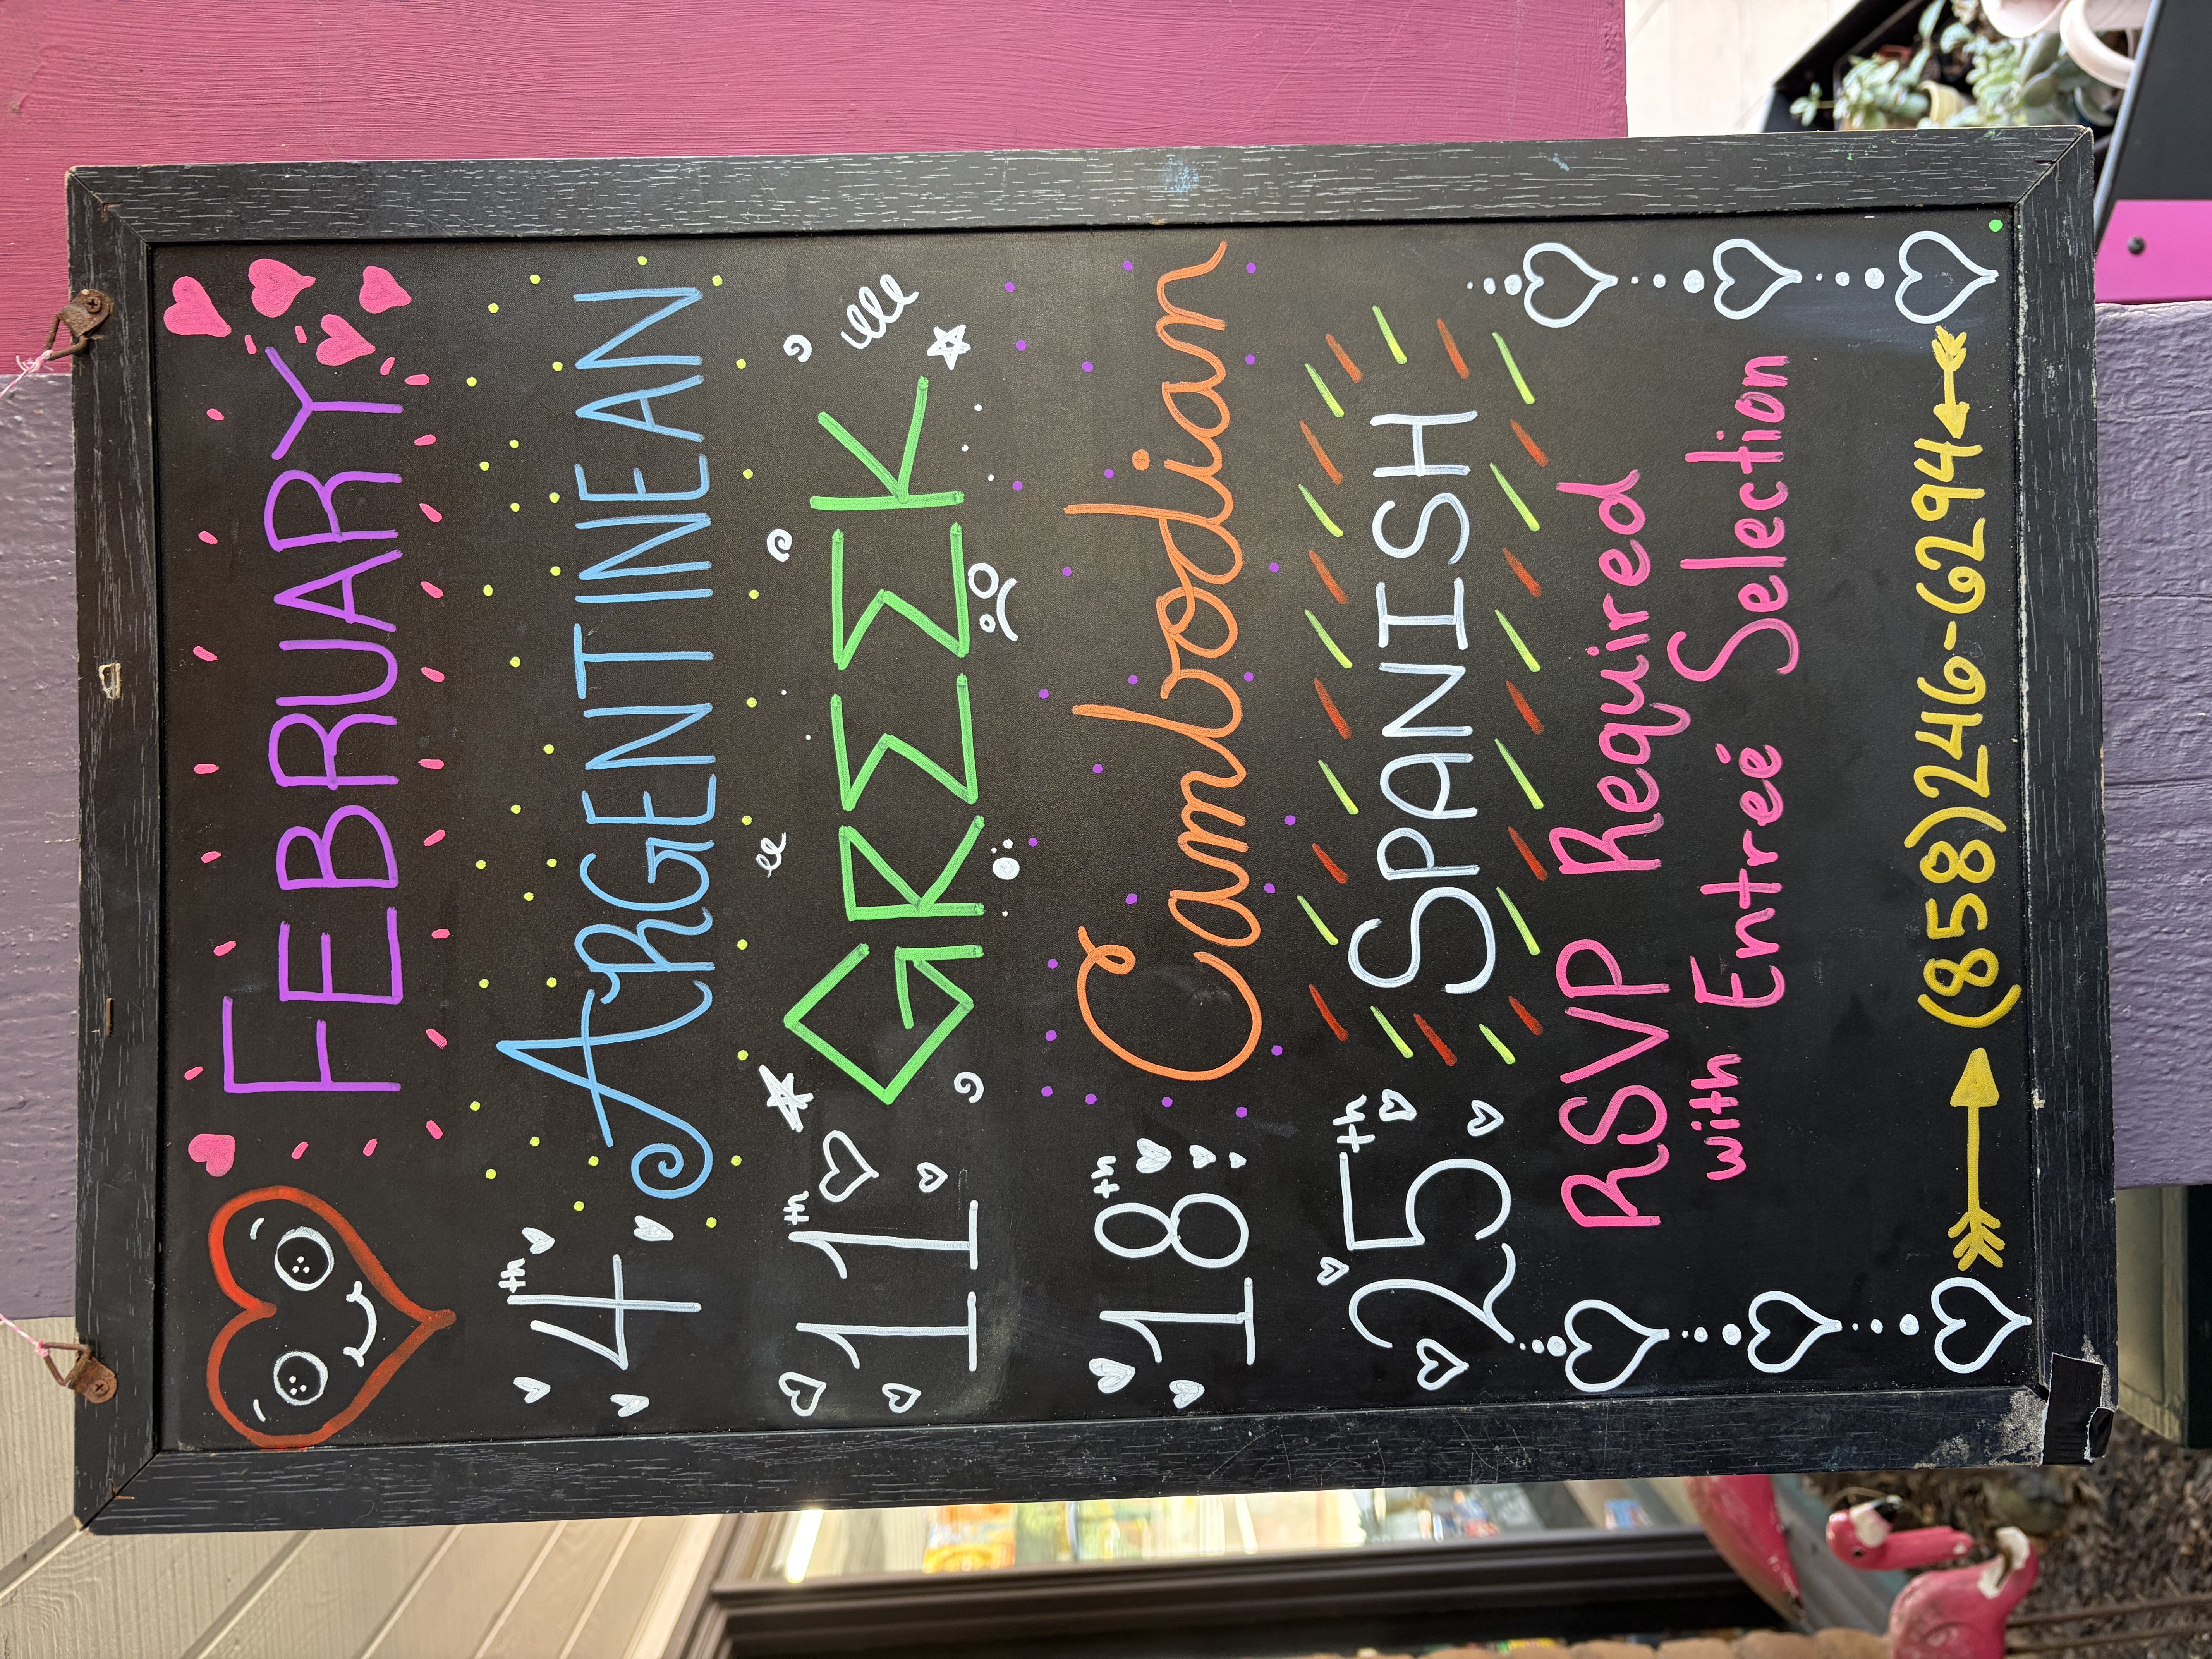 FEBRUARY
4th ARGENTINEAN
11th GRΣΣK
18th Cambodian
25th SPANISH
RSVP Required
with Entreé Selection
(858)246-6294